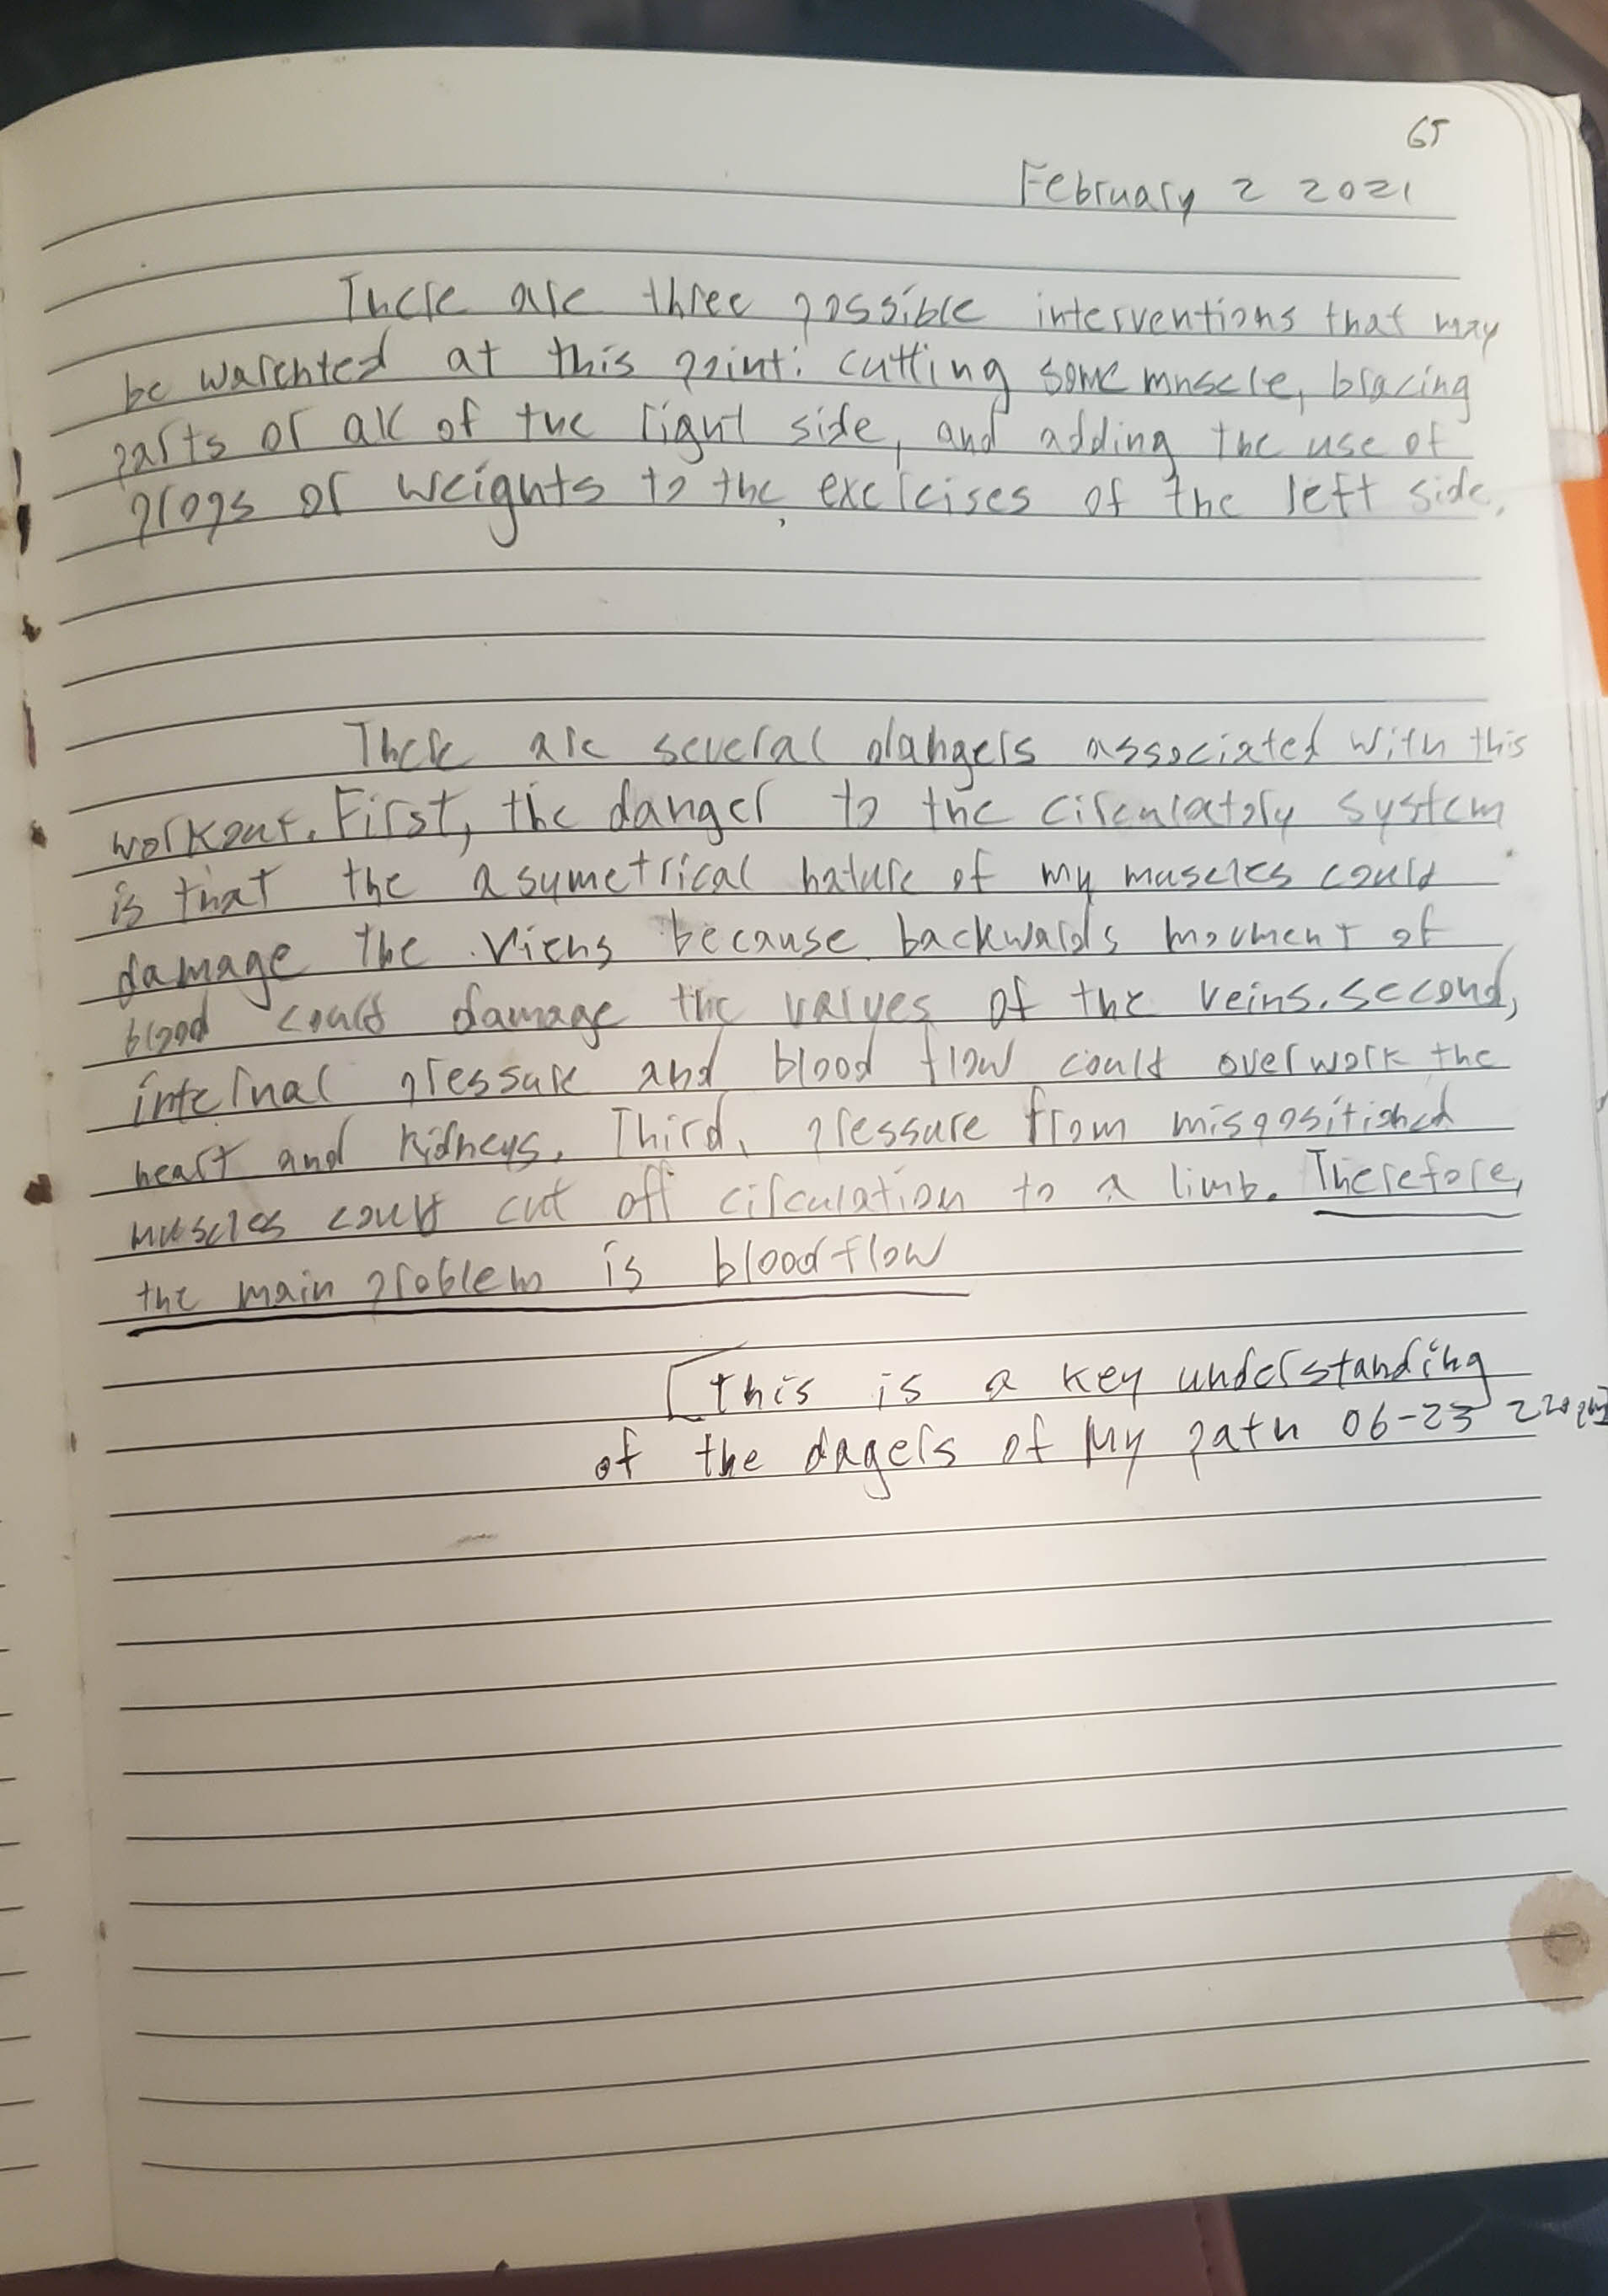 65
February 2 2021
There are three possible interventions that may
be warented at this point: cutting some muscle, bracing
parts or all of the right side, and adding the use of
props or weights to the exercises of the left side.
There are several dangers associated with this
workout. First, the danger to the circulatory system
is that the asymetrical nature of my muscles could
damage the viens because backwards movment of
blood could damage the valves of the veins. second,
internal pressure and blood flow could overwork the
heart and kidneys. Third, pressure from mispositioned
muscles could cut off circulation to a limb. Therefore,
the main problem is bloodflow
[this is a key understanding
of the dagers of My path 06-23